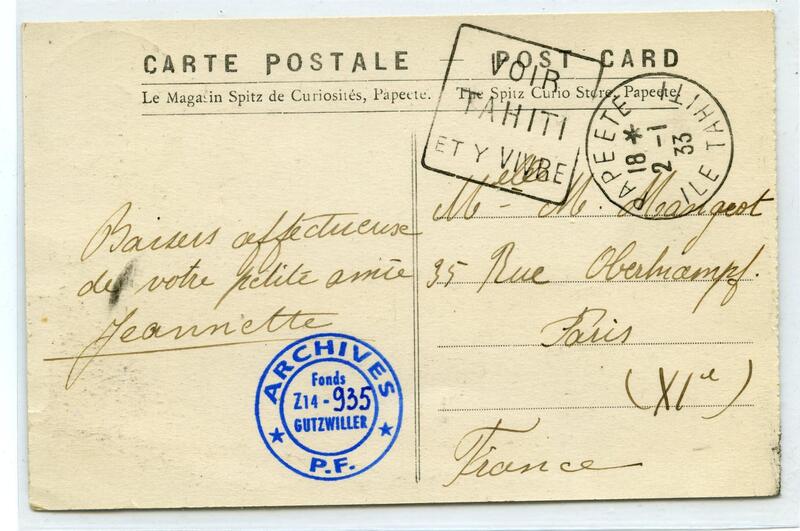 CARTE POSTALE — POST CARD
Le Magasin Spitz de Curiosités, Papeete. The Spitz Curio Store, Papeete.
VOIR
TAHITI
ET Y VIVRE
PAPEETE ILE TAHITI
18 *
2 - 1
33
Baisers affectueuse
de votre petite amie
Jeannette
Melle M. Mangeot
35 Rue Oberkampf.
Paris
(XIe)
France
ARCHIVES
Fonds
Z14-935
GUTZWILLER
P.F.